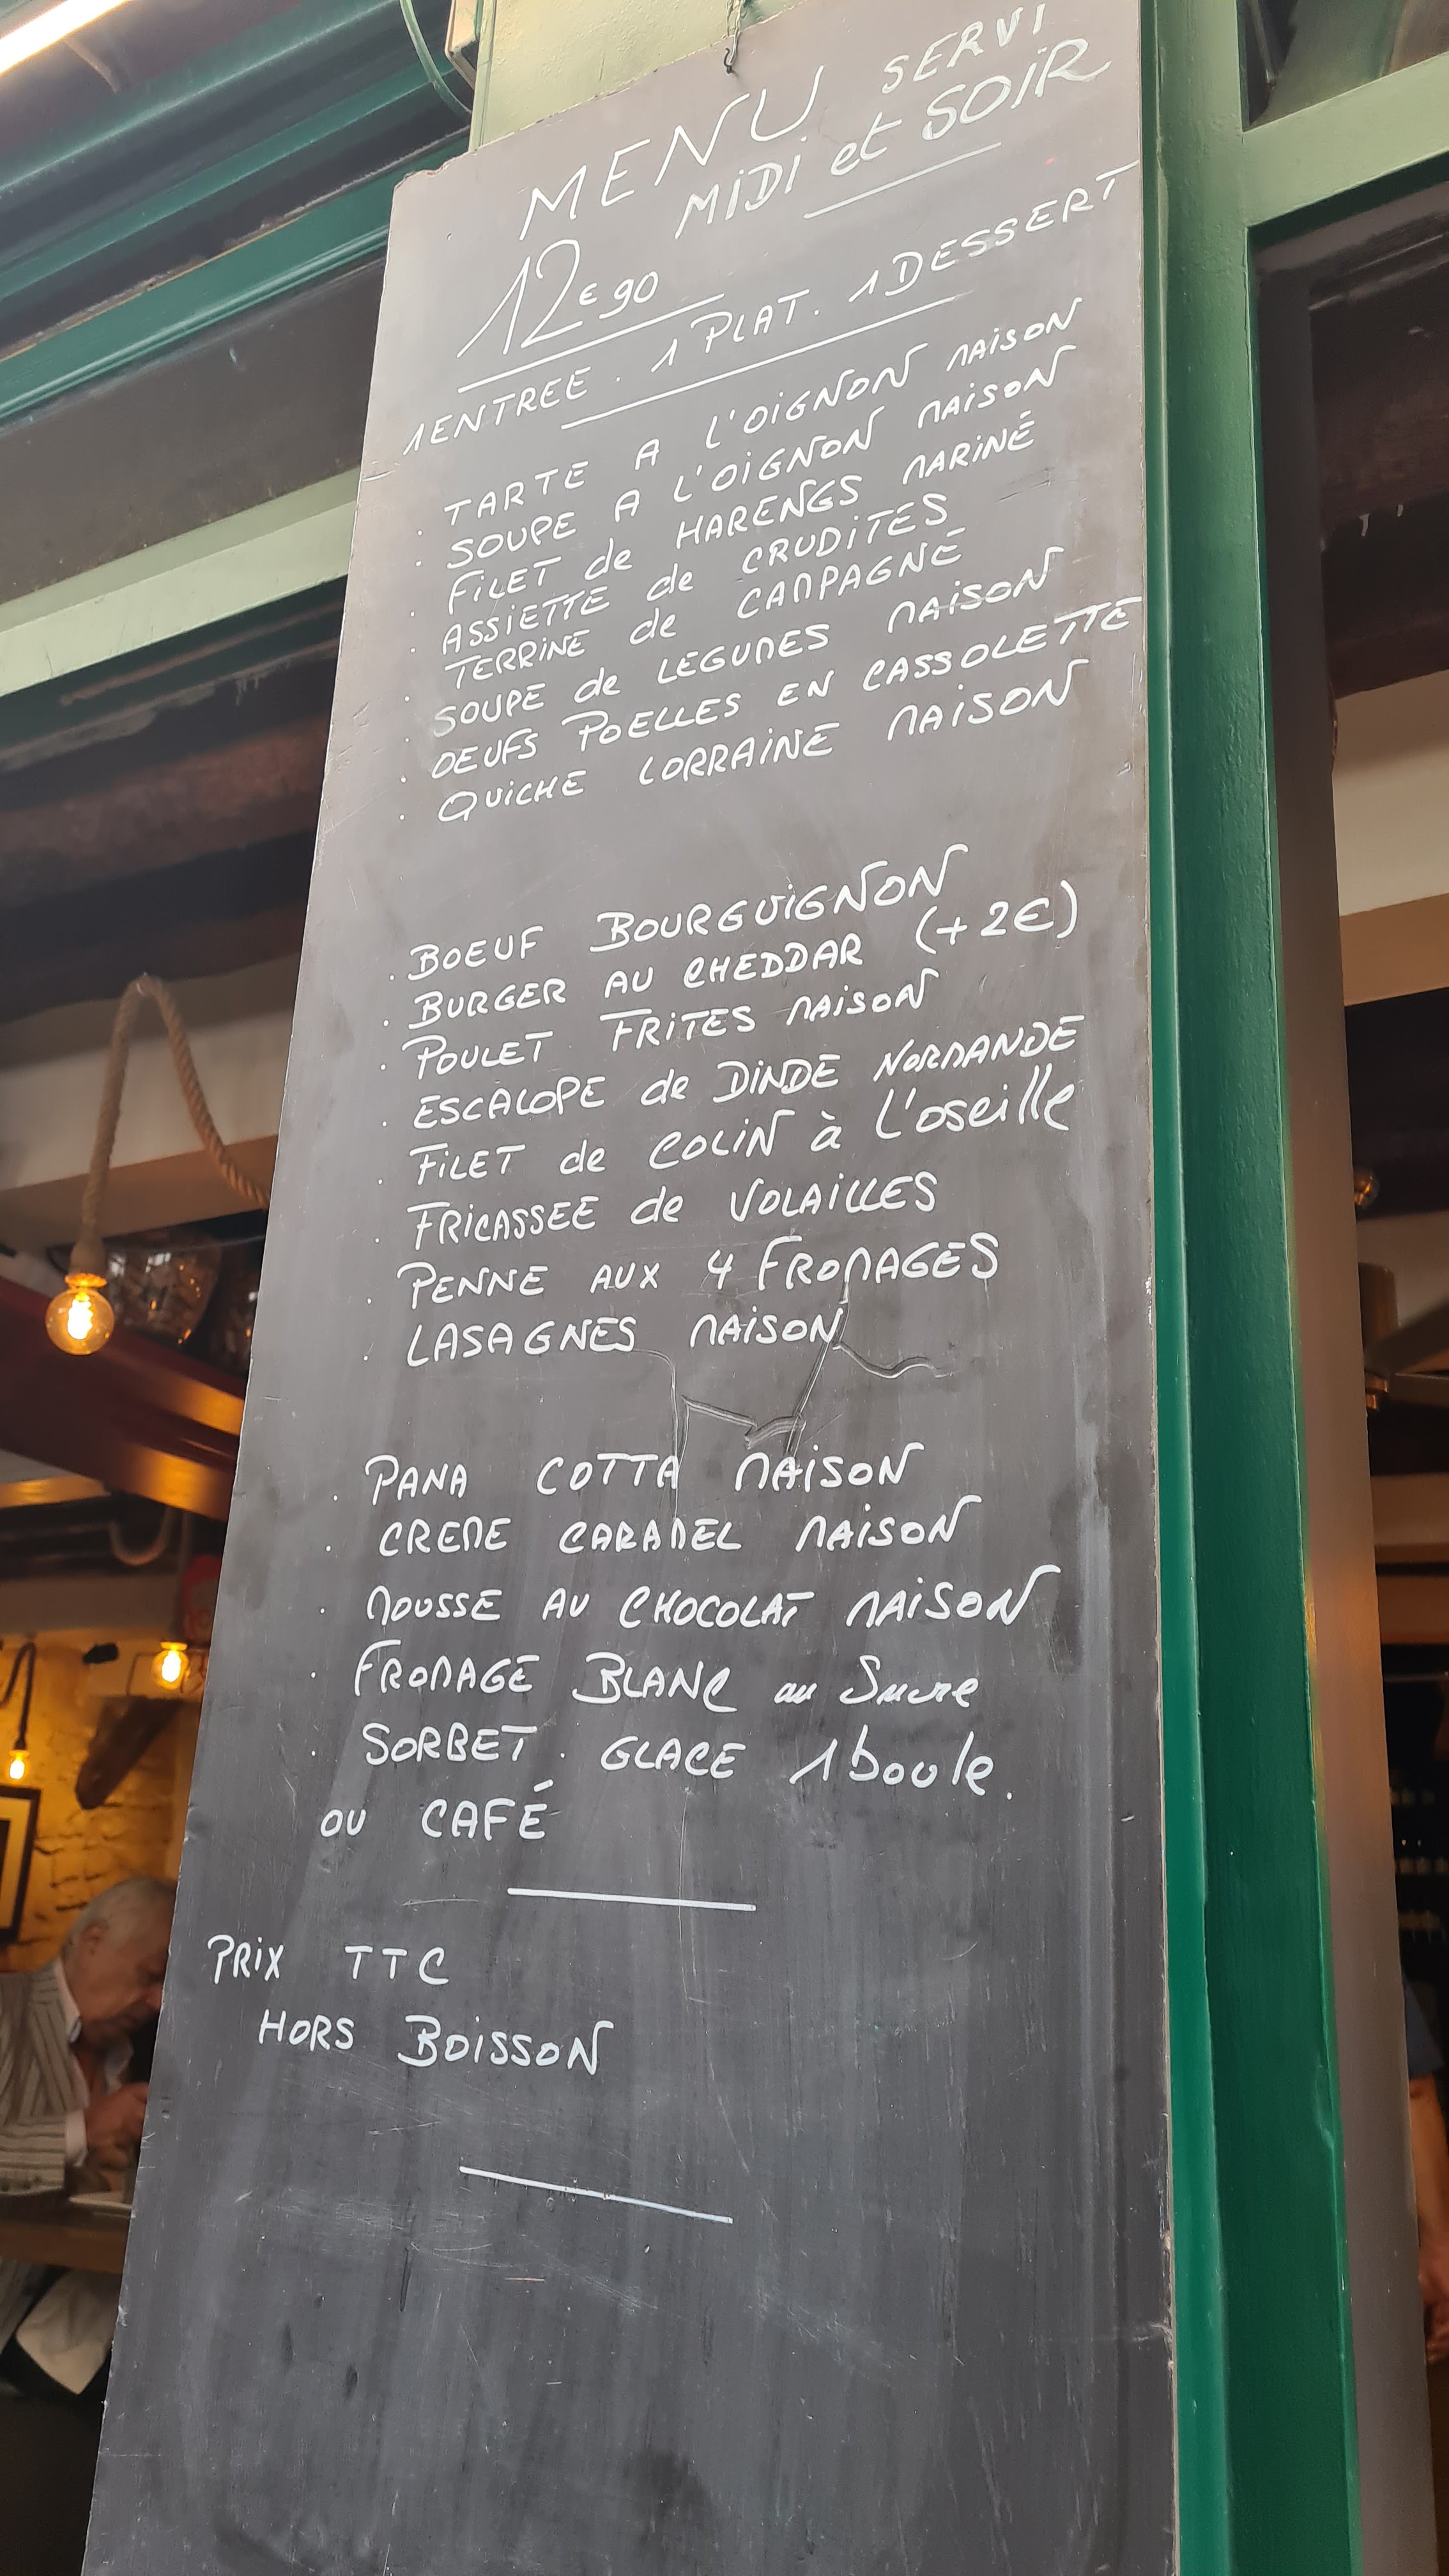 MENU SERVI
MIDI et SOIR
12€90
1 ENTREE . 1 PLAT . 1 DESSERT
. TARTE A L'OIGNON MAISON
. SOUPE A L'OIGNON MAISON
. FILET de HARENGS MARINÉ
. ASSIETTE de CRUDITES
. TERRINE de CAMPAGNE
. SOUPE de LEGUMES MAISON
. OEUFS POELLES EN CASSOLETTE
. QUICHE LORRAINE MAISON
. BOEUF BOURGUIGNON
. BURGER AU CHEDDAR (+2€)
. POULET FRITES MAISON
. ESCALOPE de DINDE NORMANDE
. FILET de COLIN à L'oseille
. FRICASSEE de VOLAILLES
. PENNE AUX 4 FROMAGES
. LASAGNES MAISON
. PANA COTTA MAISON
. CREME CARAMEL MAISON
. MOUSSE AU CHOCOLAT MAISON
. FROMAGE BLANC au Sucre
. SORBET . GLACE 1 boule.
OU CAFÉ
PRIX TTC
HORS BOISSON